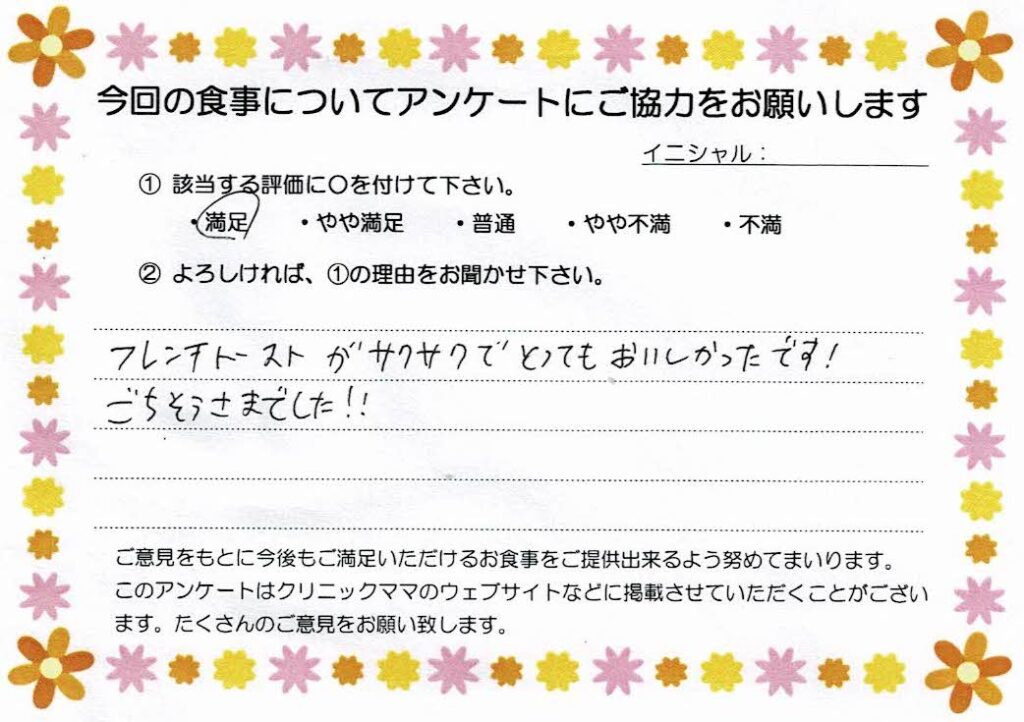 今回の食事についてアンケートにご協力をお願いします
イニシャル：
① 該当する評価に〇を付けて下さい。
・満足 ・やや満足 ・普通 ・やや不満 ・不満
② よろしければ、①の理由をお聞かせ下さい。
フレンチトーストがサクサクでとってもおいしかったです!
ごちそうさまでした!!
ご意見をもとに今後もご満足いただけるお食事をご提供出来るよう努めてまいります。
このアンケートはクリニックママのウェブサイトなどに掲載させていただくことがござい
ます。たくさんのご意見をお願い致します。